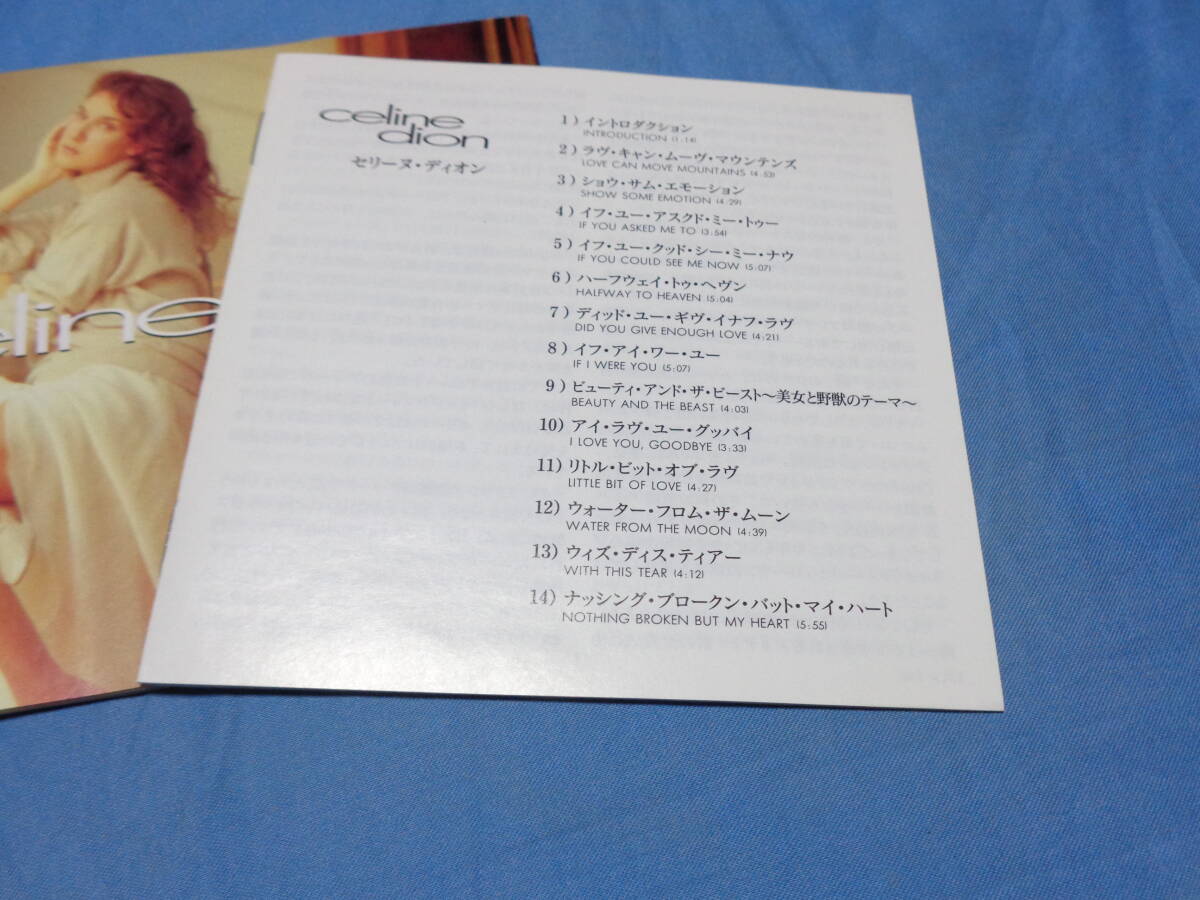 celine
celine
dion
セリーヌ・ディオン
1) イントロダクション
INTRODUCTION (1:14)
2) ラヴ・キャン・ムーヴ・マウンテンズ
LOVE CAN MOVE MOUNTAINS (4:53)
3) ショウ・サム・エモーション
SHOW SOME EMOTION (4:29)
4) イフ・ユー・アスクド・ミー・トゥー
IF YOU ASKED ME TO (3:54)
5) イフ・ユー・クッド・シー・ミー・ナウ
IF YOU COULD SEE ME NOW (5:07)
6) ハーフウェイ・トゥ・ヘヴン
HALFWAY TO HEAVEN (5:04)
7) ディッド・ユー・ギヴ・イナフ・ラヴ
DID YOU GIVE ENOUGH LOVE (4:21)
8) イフ・アイ・ワー・ユー
IF I WERE YOU (5:07)
9) ビューティ・アンド・ザ・ビースト〜美女と野獣のテーマ〜
BEAUTY AND THE BEAST (4:03)
10) アイ・ラヴ・ユー・グッバイ
I LOVE YOU, GOODBYE (3:33)
11) リトル・ビット・オブ・ラヴ
LITTLE BIT OF LOVE (4:27)
12) ウォーター・フロム・ザ・ムーン
WATER FROM THE MOON (4:39)
13) ウィズ・ディス・ティアー
WITH THIS TEAR (4:12)
14) ナッシング・ブロークン・バット・マイ・ハート
NOTHING BROKEN BUT MY HEART (5:55)